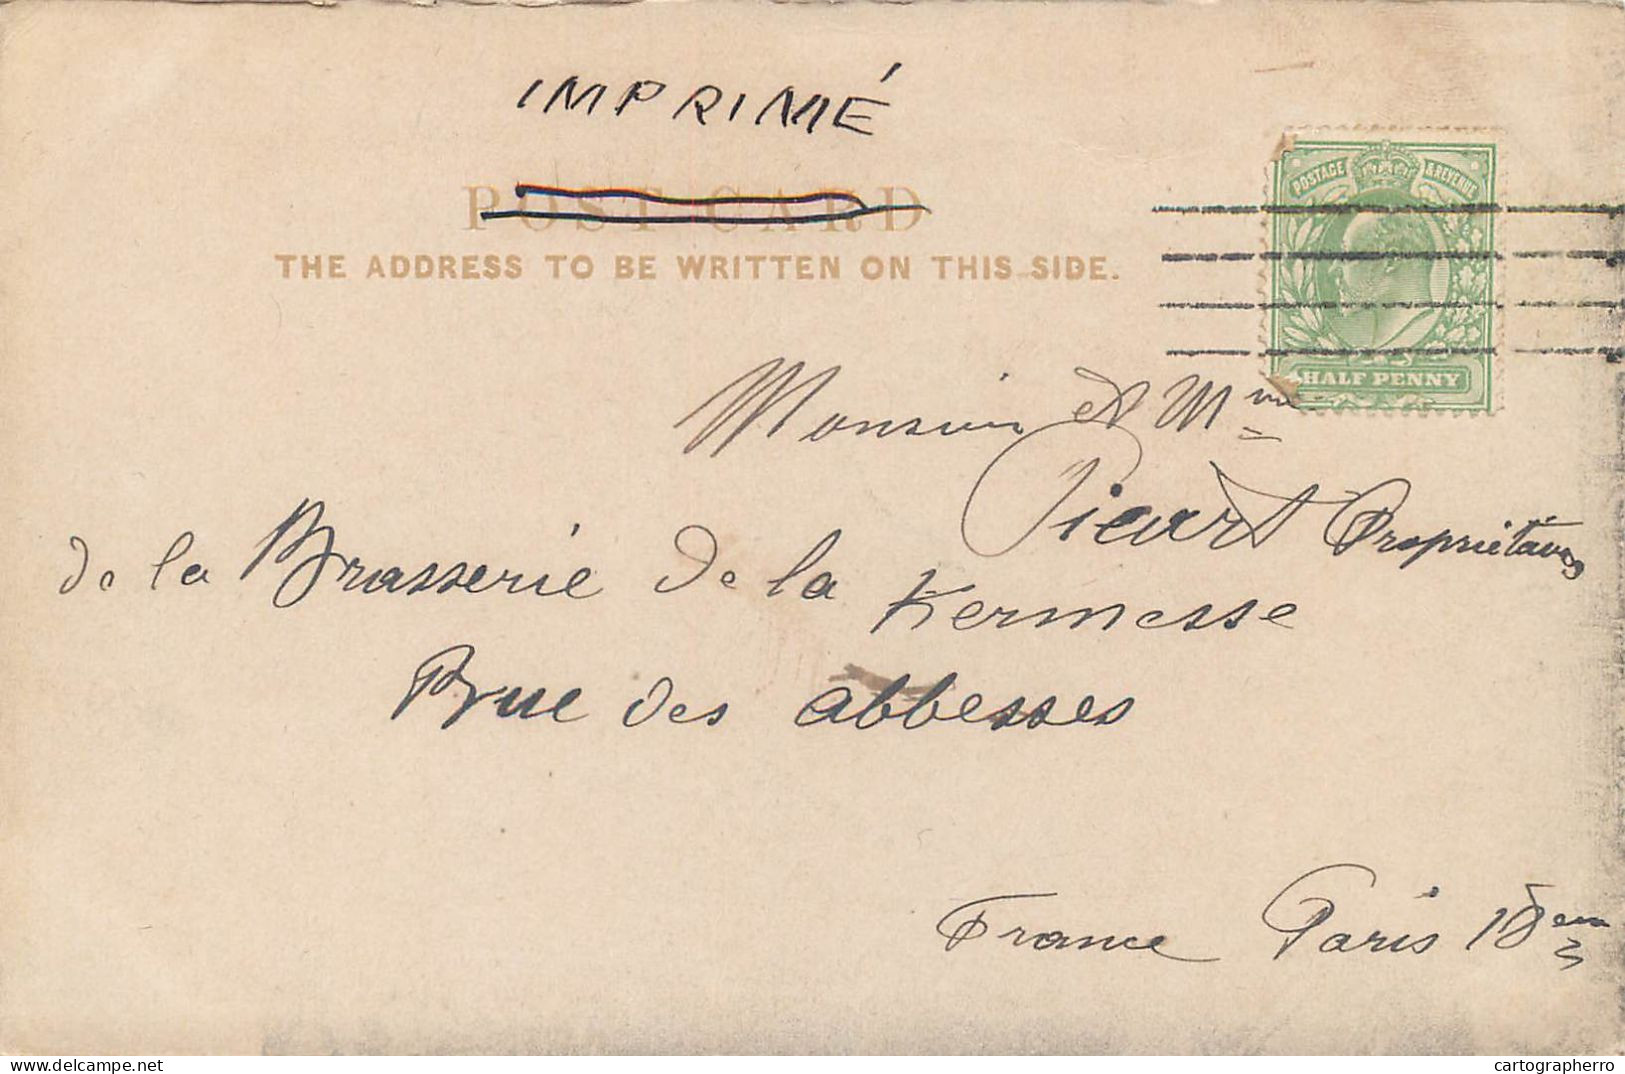 IMPRIMÉ
POST CARD
THE ADDRESS TO BE WRITTEN ON THIS SIDE.
POSTAGE & REVENUE
HALF PENNY
Monsieur et Mme
Picart Propriétaires
de la Brasserie de la Kermesse
Rue des abbesses
France Paris 18em
delcampe.net
cartographerro